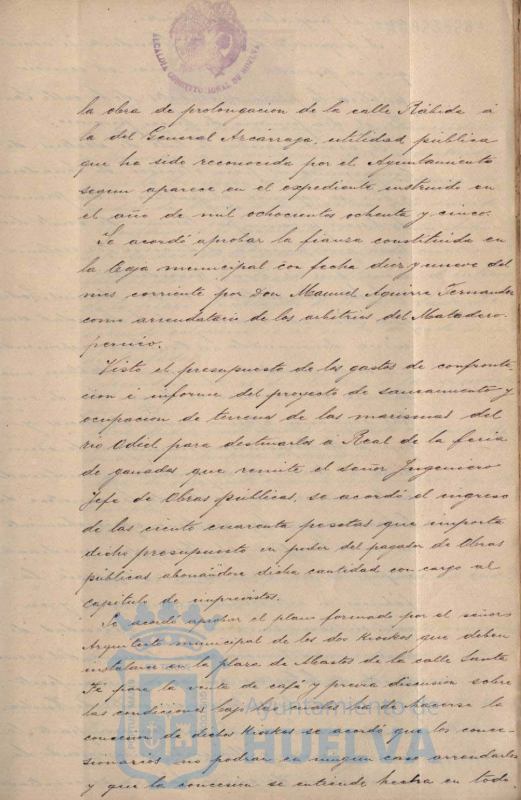 ALCALDIA CONSTITUCIONAL DE HUELVA
la obra de prolongacion de la calle Rábida á
la del General Azcárraga, utilidad pública
que ha sido reconocida por el Ayuntamiento
segun aparece en el expediente instruido en
el año de mil ochocientos ochenta y cinco.
Se acordó aprobar la fianza constituida en
la Caja municipal con fecha diez y nueve del
mes corriente por Don Manuel Aguirre Fernandez
como arrendatario de los arbitrios del Matadero
Visto el presupuesto de los gastos de confronta
cion é informe del proyecto de saneamiento y
ocupacion de terrenos de las marismas del
rio Odiel para destinarlos á Real de la feria
de ganados que remite el señor Ingeniero
Jefe de Obras públicas, se acordó el ingreso
de las ciento cuarenta pesetas que importa
dicho presupuesto en poder del pagador de Obras
públicas abonandose dicha cantidad con cargo al
capitulo de imprevistos.
Se acordó aprobar el plano formado por el señor
Arquitecto municipal de los dos Kioskos que deben
instalarse en la plaza de Abastos de la calle Santa
Fé para la venta de café y previa discusion sobre
las condiciones bajo las cuales ha de hacerse la
concesion de dichos Kioskos se acordó que los conce-
sionarios no podrán en ningun caso arrendarlos
y que la concesion se entiende hecha en todo
Ayuntamiento de
HUELVA